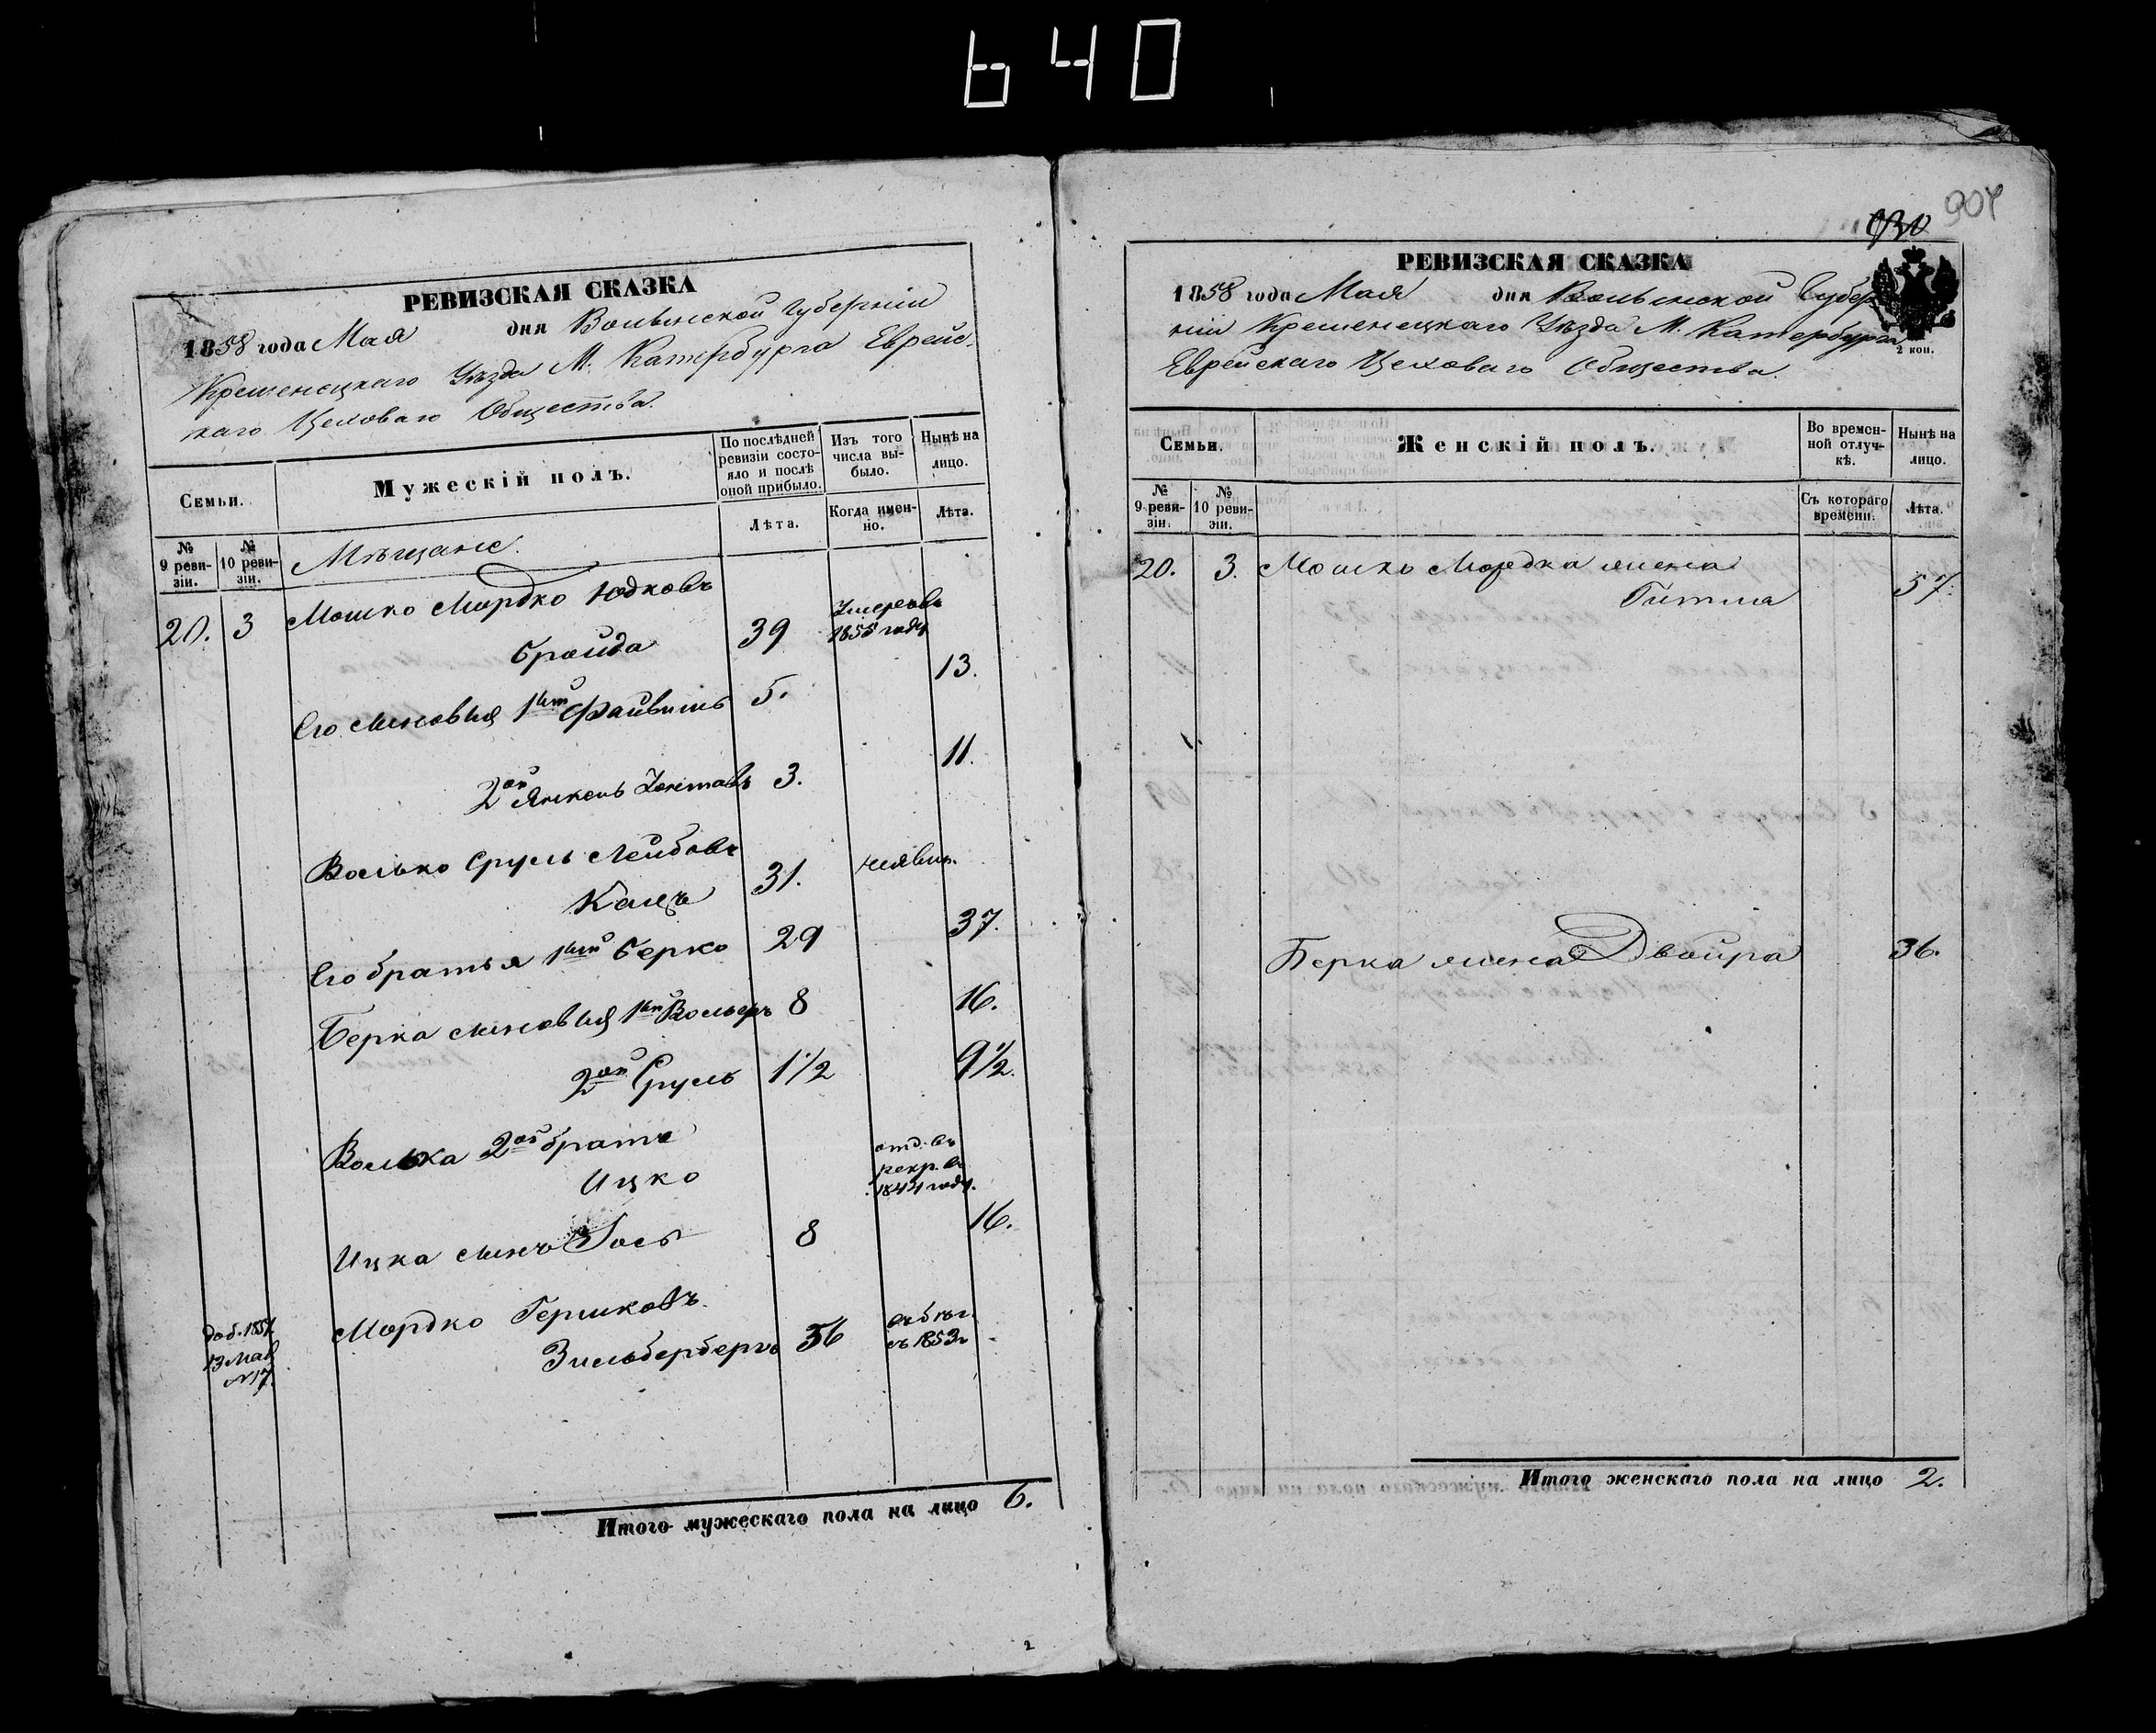 640
РЕВИЗСКАЯ СКАЗКА
1858 года Мая дня Волынской Губерніи
Кременецкаго Уѣзда М. Катербурга Еврейс-
каго Цеховаго Общества.
Семьи.
Мужескій полъ.
По послѣдней ревизіи состояло и послѣ оной прибыло.
Изъ того числа выбыло.
Нынѣ на лицо.
№ 9 ревизіи.
№ 10 ревизіи.
Лѣта.
Когда именно.
Лѣта.
Мѣщане.
20. 3 Мошко Мордко Юдковъ
Бройда 39 Умеръ въ 1855 году
Его сыновья 1ый Файвишъ 5. 13.
2ой Янкель 3. 11.
Волько Сруль Лейбовъ
Кацъ 31. неявил.
Его братья 1ый Берко 29 37.
Берка сыновья 1ый 8 16.
2ой Сруль 1 1/2 9 1/2.
Волька 2ой братъ
Ицко отд. въ рекр. въ 1844 году.
Ицка сынъ Іось 8 16.
доб. 1851
13 Мая
№17.
Мордко Гершковъ
Зильбербергъ 36 въ 1853
Итого мужескаго пола на лицо 6.
2
904
РЕВИЗСКАЯ СКАЗКА
1858 года Мая дня Волынской Губер
ніи Кременецкаго Уѣзда М. Катербурга
Еврейскаго Цеховаго Общества.
2 коп.
Семьи.
Женскій полъ.
Во временной отлучкѣ.
Нынѣ на лицо.
№ 9 ревизіи.
№ 10 ревизіи.
Съ котораго времени.
Лѣта.
20. 3. Мошко Мордка жена
Гитля 57.
Берка жена Двойра 36.
Итого женскаго пола на лицо 2.